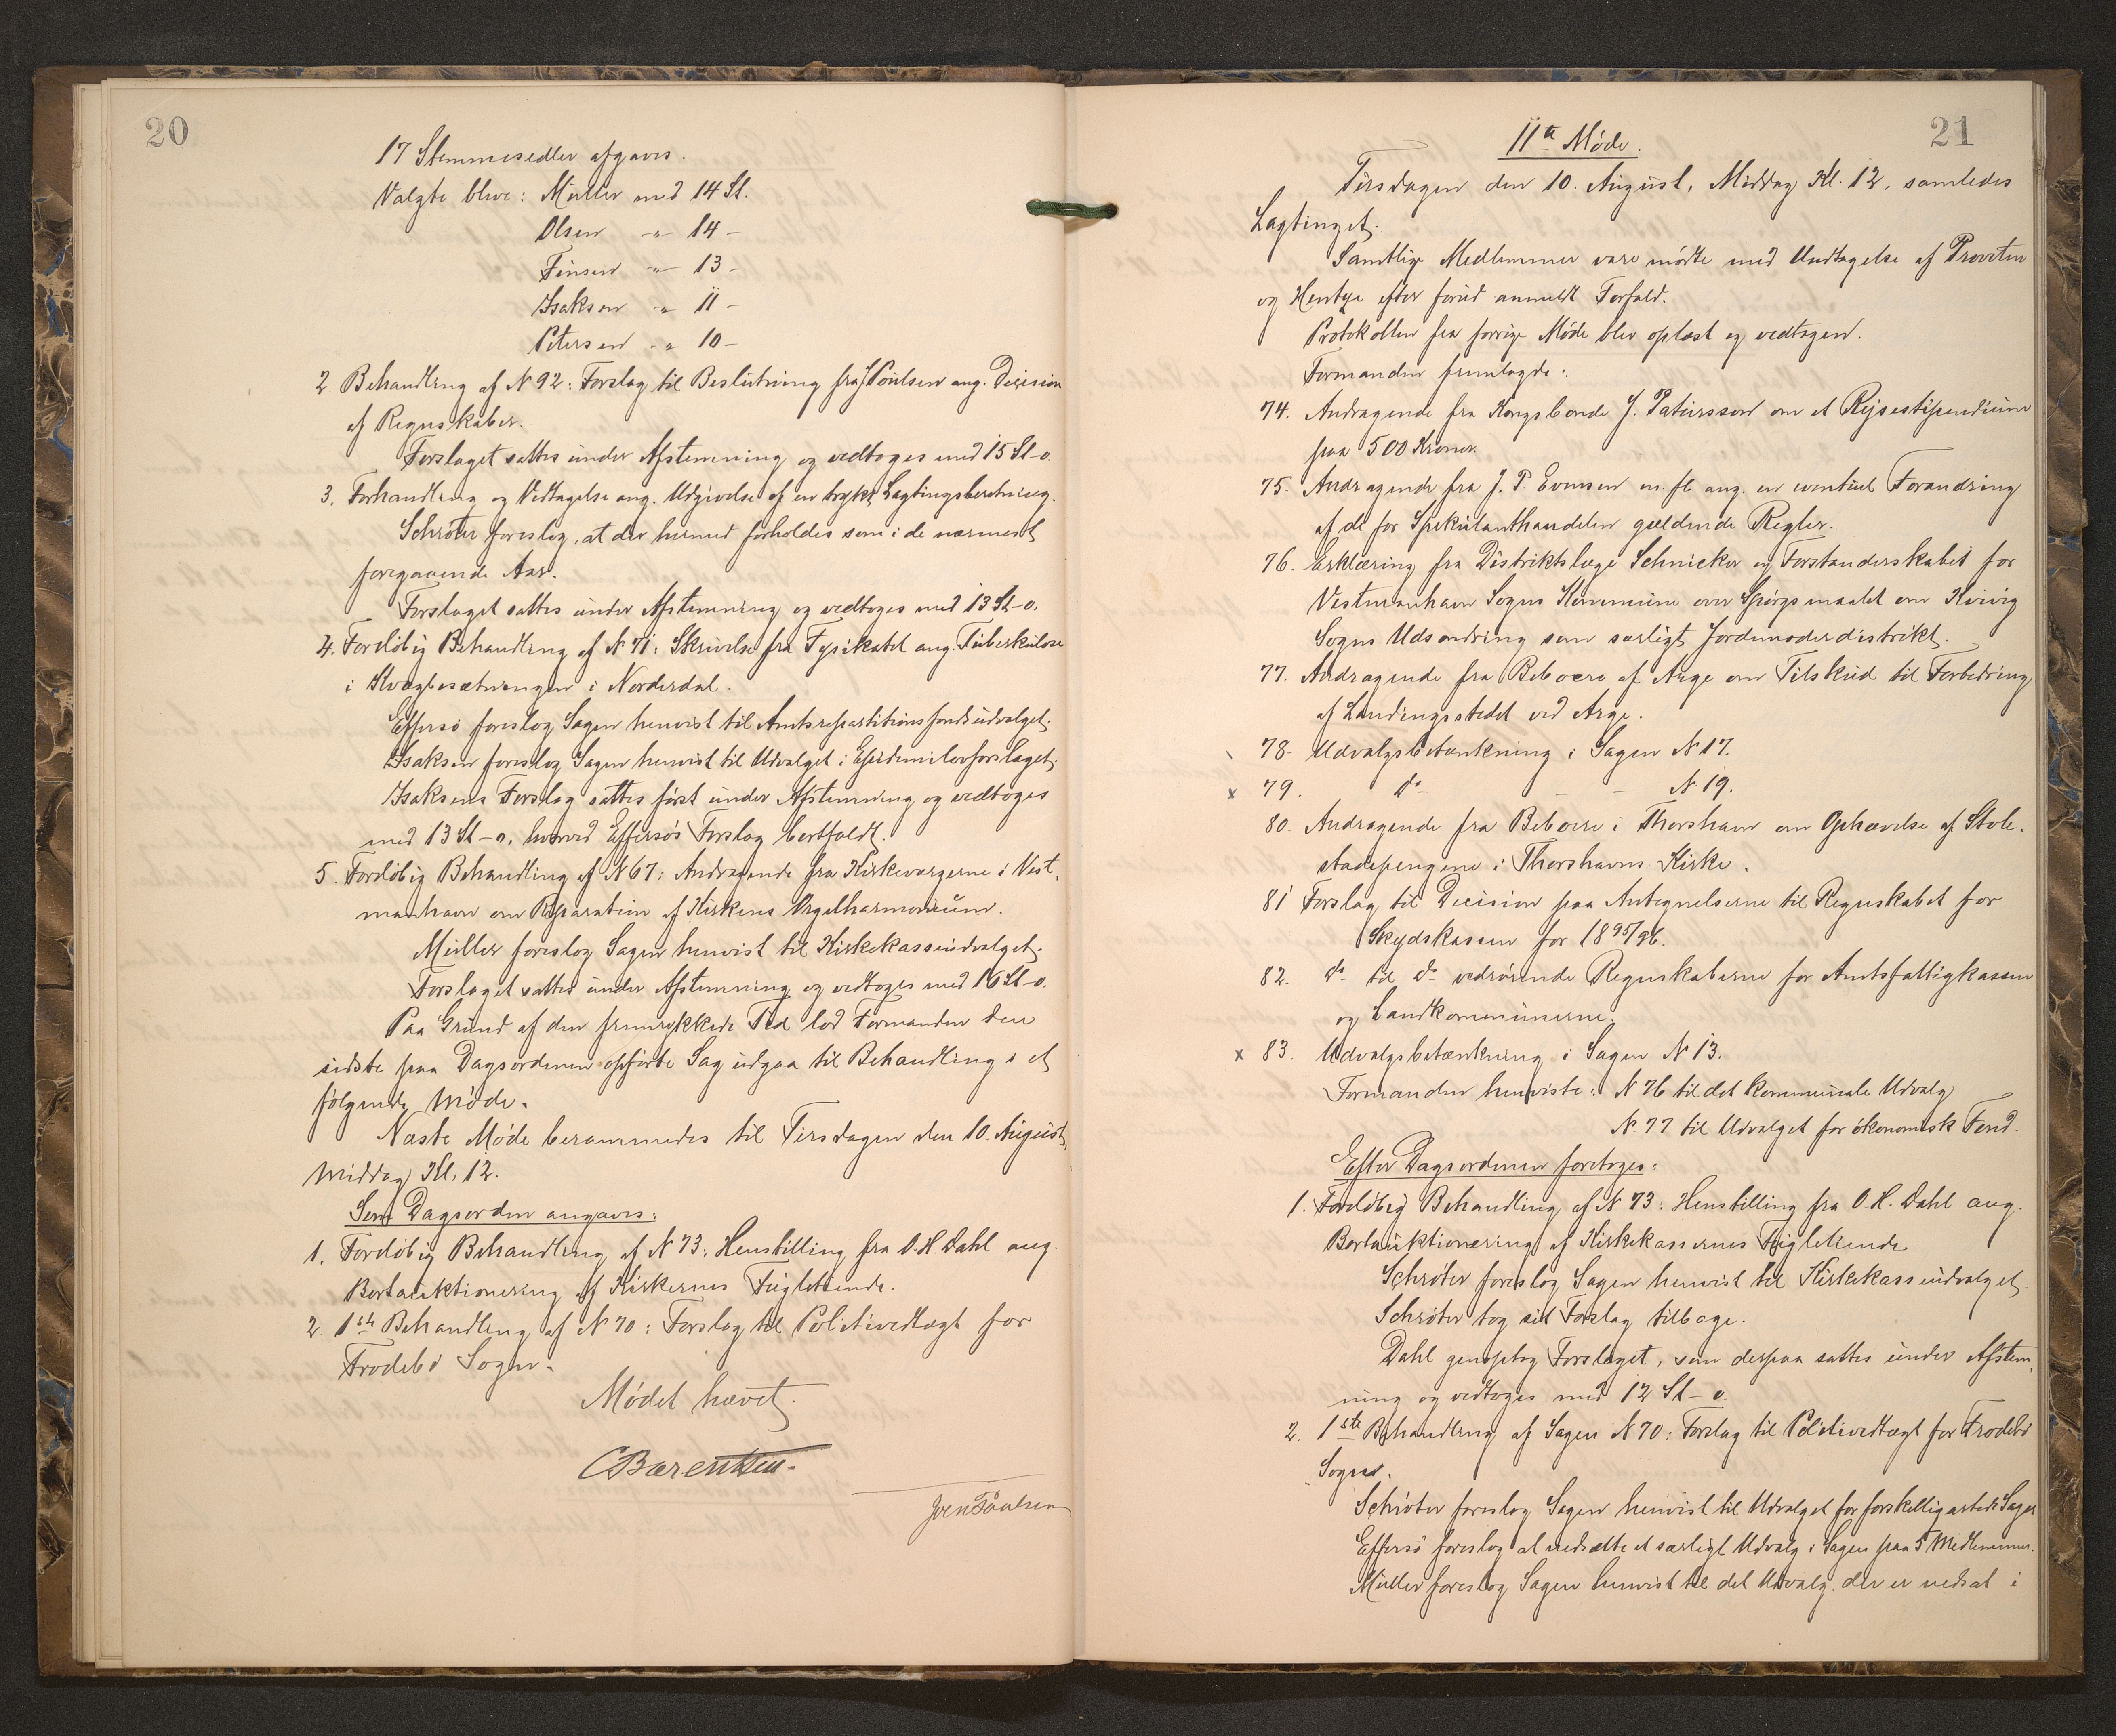 20
17 Stemmesedler afgaves.
Valgte bleve: Müller med 14 St.
Olsen -"- 14 -
Finsen -"- 13 -
Isaksen -"- 11 -
Petersen -"- 10 -
2 Behandling af N 92: Forslag til Beslutning fra J Poulsen ang. Decision
af Regnskaber.
Forslaget sattes under Afstemning og vedtoges med 15 St-0.
3. Forhandling og Vedtagelse ang. Udgivelse af en trykt Lagtingsberetning.
Schrøter foreslog, at der hermed forholdes som i de nærmest
foregaaende Aar.
Forslaget sattes under Afstemning og vedtoges med 13 St-0.
4. Foreløbig Behandling af N 71: Skrivelse fra Fysikatet ang. Tuberkulose
i Kvægbesætningen i Norderdal.
Effersø foreslog Sagen henvist til Amtsrepartitionsfondsudvalget.
Isaksen foreslog Sagen henvist til Udvalget i Epidemilovforslaget.
Isaksens Forslag sattes først under Afstemning og vedtoges
med 13 St-0, hvorved Effersøs Forslag bortfaldt.
5. Foreløbig Behandling af N 67: Andragende fra Kirkeværgerne i Vest-
manhavn om Reparation af Kirkens Orgelharmonium.
Müller foreslog Sagen henvist til Kirkekasseudvalget.
Forslaget sattes under Afstemning og vedtoges med 16 St-0.
Paa Grund af den fremrykkede Tid lod Formanden den
sidste paa Dagsordenen opførte Sag udgaa til Behandling i et
følgende Møde.
Næste Møde berammedes til Tirsdagen den 10. August,
Middag Kl. 12.
Som Dagsorden angaves:
1. Foreløbig Behandling af N 73: Henstilling fra O. H. Dahl ang.
Bortauktionering af Kirkernes Fugletiende.
2 1ste Behandling af N 70: Forslag til Politivedtægt for
Frodebø Sogn.
Mødet hævet.
CBærentsen.
Joen Poulsen
21
11te Møde.
Tirsdagen den 10. August, Middag Kl. 12, samledes
Lagtinget.
Samtlige Medlemmer vare mødte med Undtagelse af Provsten
og Hentze efter forud anmeldt Forfald.
Protokollen fra forrige Møde blev oplæst og vedtagen.
Formanden fremlagde:
74. Andragende fra Kongsbonde J. Patursson om et Rejsestipendium
paa 500 Kroner.
75. Andragende fra J. P. Evensen m. fl. ang. en eventuel Forandring
af de for Spekulanthandelen gældende Regler.
76. Erklæring fra Distriktslæge Schnicker og Forstanderskabet for
Vestmanhavn Sogns Kommune over Spørgsmaalet om Kvivig
Sogns Udsondring som særligt Jordemoderdistrikt.
77. Andragende fra Beboere af Arge om Tilskud til Forbedring
af Landingsstedet ved Arge.
78. Udvalgsbetænkning i Sagen N 17.
x 79. do - - N 19.
80. Andragende fra Beboere i Thorshavn om Ophævelse af Stole-
stadepengene i Thorshavns Kirke.
81 Forslag til Decision paa Antegnelserne til Regnskabet for
Skydskassen for 1895/96.
82. do til do vedrørende Regnskaberne for Amtsfattigkassen
og Landkommunerne.
x 83. Udvalgsbetænkning i Sagen N 13.
Formanden henviste: N 76 til det kommunale Udvalg
N. 77 til Udvalget for økonomisk Fond.
Efter Dagsordenen foretoges:
1. Foreløbig Behandling af N 73: Henstilling fra O. H. Dahl ang.
Bortauktionering af Kirkekassernes Fugletiende
Schrøter foreslog Sagen henvist til Kirkekasseudvalget.
Schrøter tog sit Forslag tilbage.
Dahl genoptog Forslaget, som derpaa sattes under Afstem-
ning og vedtoges med 12 St-0.
2. 1ste Behandling af Sagen N 70: Forslag til Politivedtægt for Frodebø
Sogn.
Schrøter foreslog Sagen henvist til Udvalget for forskelligartede Sager
Effersø foreslog at nedsætte et særligt Udvalg i Sagen paa 5 Medlemmer.
Müller foreslog Sagen henvist til det Udvalg, der er nedsat i